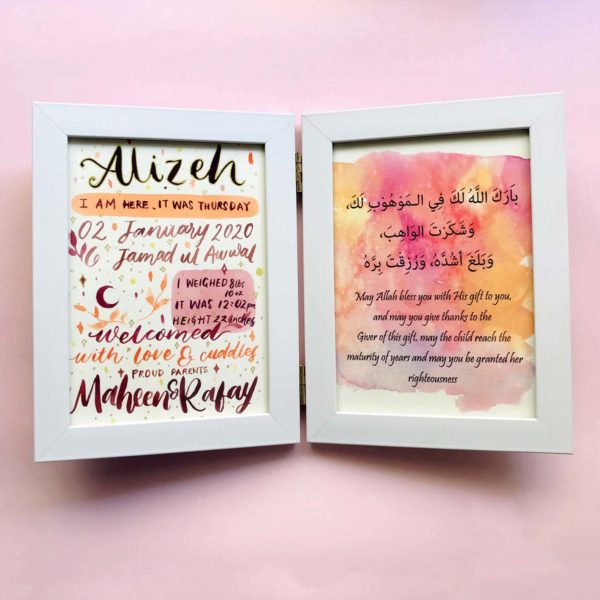 Alizeh
I AM HERE. IT WAS THURSDAY
02 January 2020
6 Jamad ul Awwal
I WEIGHED 8lbs
10oz
IT WAS 12:02pm
HEIGHT 22 inches
welcomed
with love & cuddles
PROUD PARENTS
Maheen & Rafay
بَارَكَ اللَّهُ لَكَ فِي الـمَوْهُوبِ لَكَ،
وَشَكَرْتَ الوَاهِبَ،
وَبَلَغَ أَشُدَّهُ، وَرُزِقْتَ بِرَّهُ
May Allah bless you with His gift to you,
and may you give thanks to the
Giver of this gift, may the child reach the
maturity of years and may you be granted her
righteousness